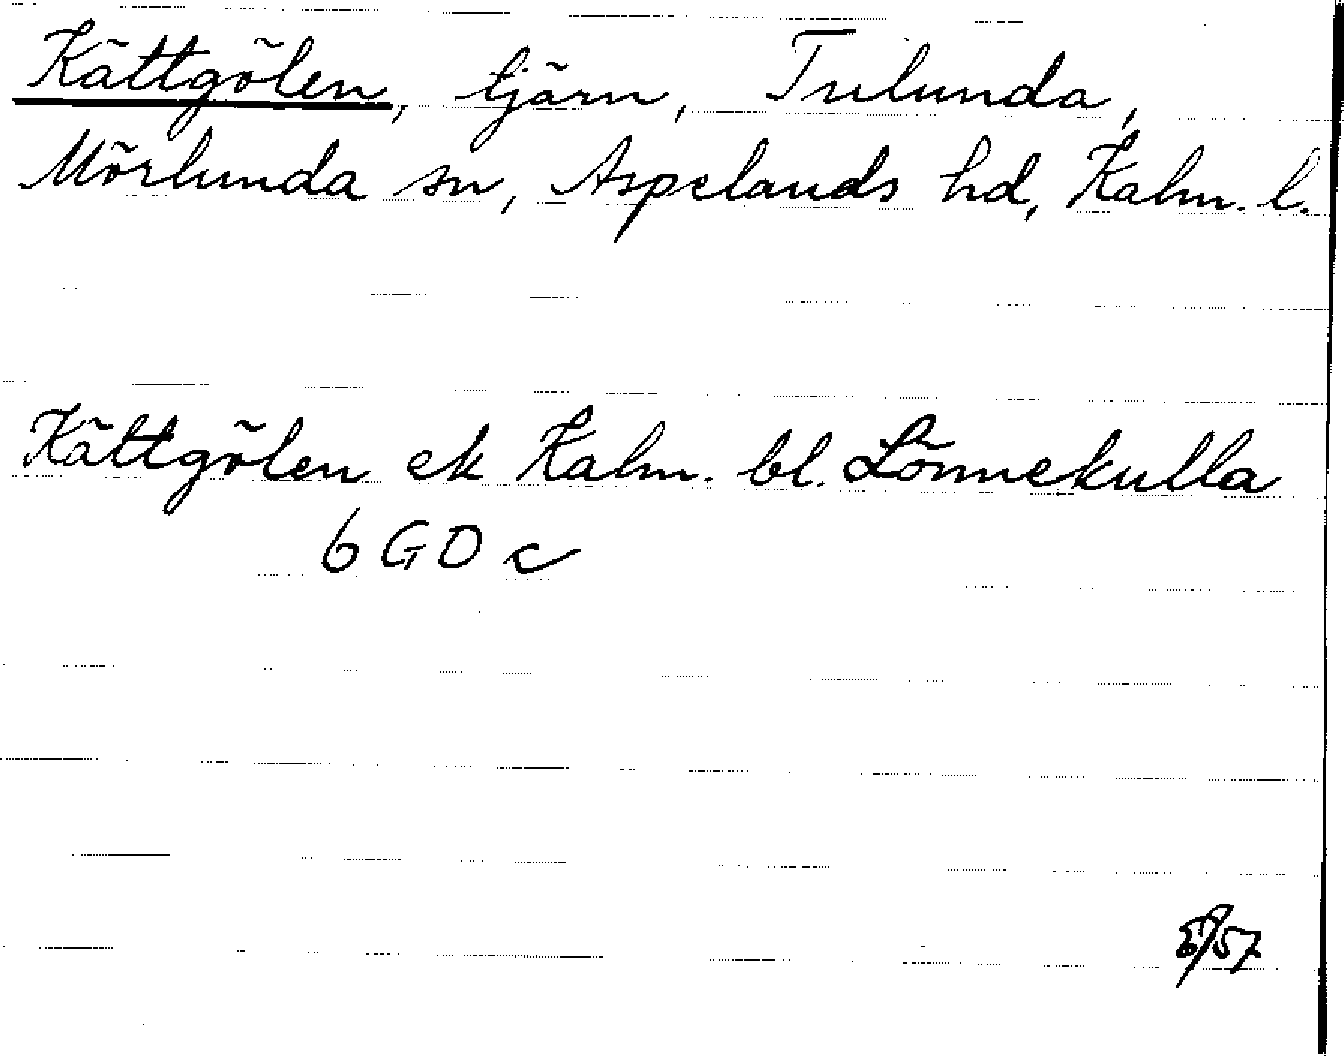 Kättgölen, tjärn, Tulunda,
Mörlunda sn, Aspelands hd, Kalm. l.
Kättgölen ek Kalm. bl. Lönnekulla
6 G O c